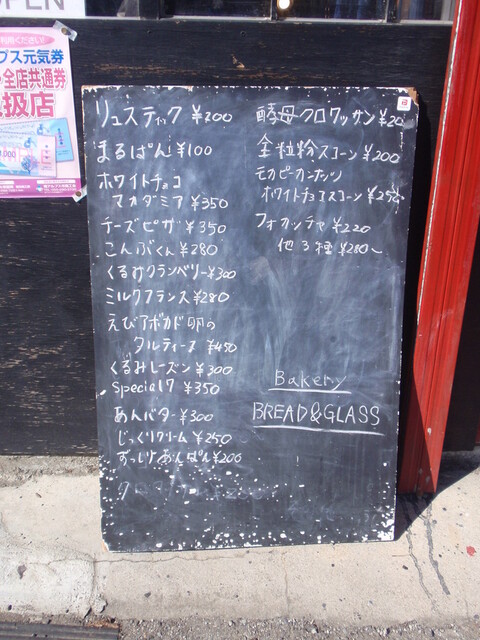 OPEN
利用ください!
プス元気券
全店共通券
扱店
リュスティック ¥200
まるぱん ¥100
ホワイトチョコ
マカダミア ¥350
チーズピザ ¥350
こんぶくん ¥280
くるみクランベリー ¥300
ミルクフランス ¥280
えびアボカド卵の
タルティーヌ ¥450
くるみレーズン ¥300
Special7 ¥350
あんバター ¥300
じっくりクリーム ¥250
ずっしりあんぱん ¥200
酵母クロワッサン ¥20
全粒粉スコーン ¥200
モカピーカンナッツ
ホワイトチョコスコーン ¥250
フォカッチャ ¥220
他3種 ¥280~
Bakery
BREAD&GLASS